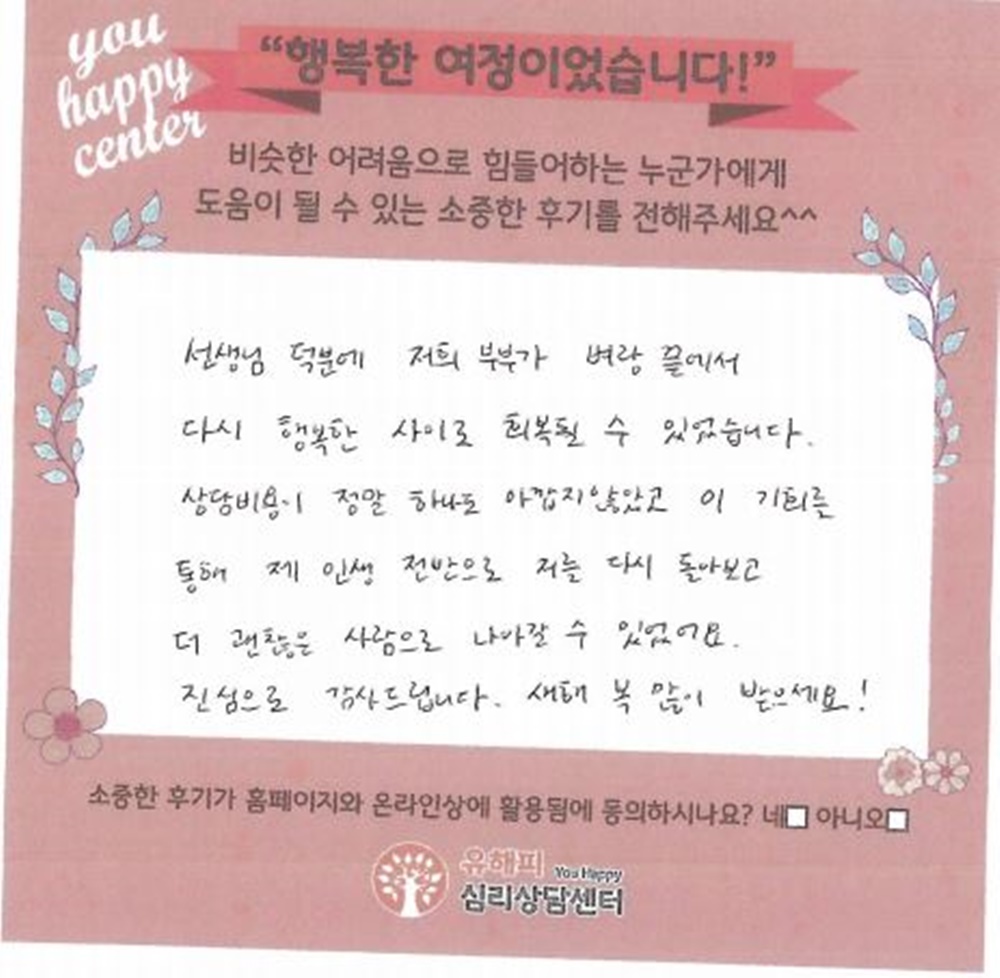 you
happy
center
“행복한 여정이었습니다!”
비슷한 어려움으로 힘들어하는 누군가에게
도움이 될 수 있는 소중한 후기를 전해주세요^^
선생님 덕분에 저희 부부가 벼랑 끝에서
다시 행복한 사이로 회복될 수 있었습니다.
상담비용이 정말 하나도 아깝지않았고 이 기회를
통해 제 인생 전반으로 저를 다시 돌아보고
더 괜찮은 사람으로 나아갈 수 있었어요.
진심으로 감사드립니다. 새해 복 많이 받으세요!
소중한 후기가 홈페이지와 온라인상에 활용됨에 동의하시나요? 네□ 아니오□
유해피 You Happy
심리상담센터